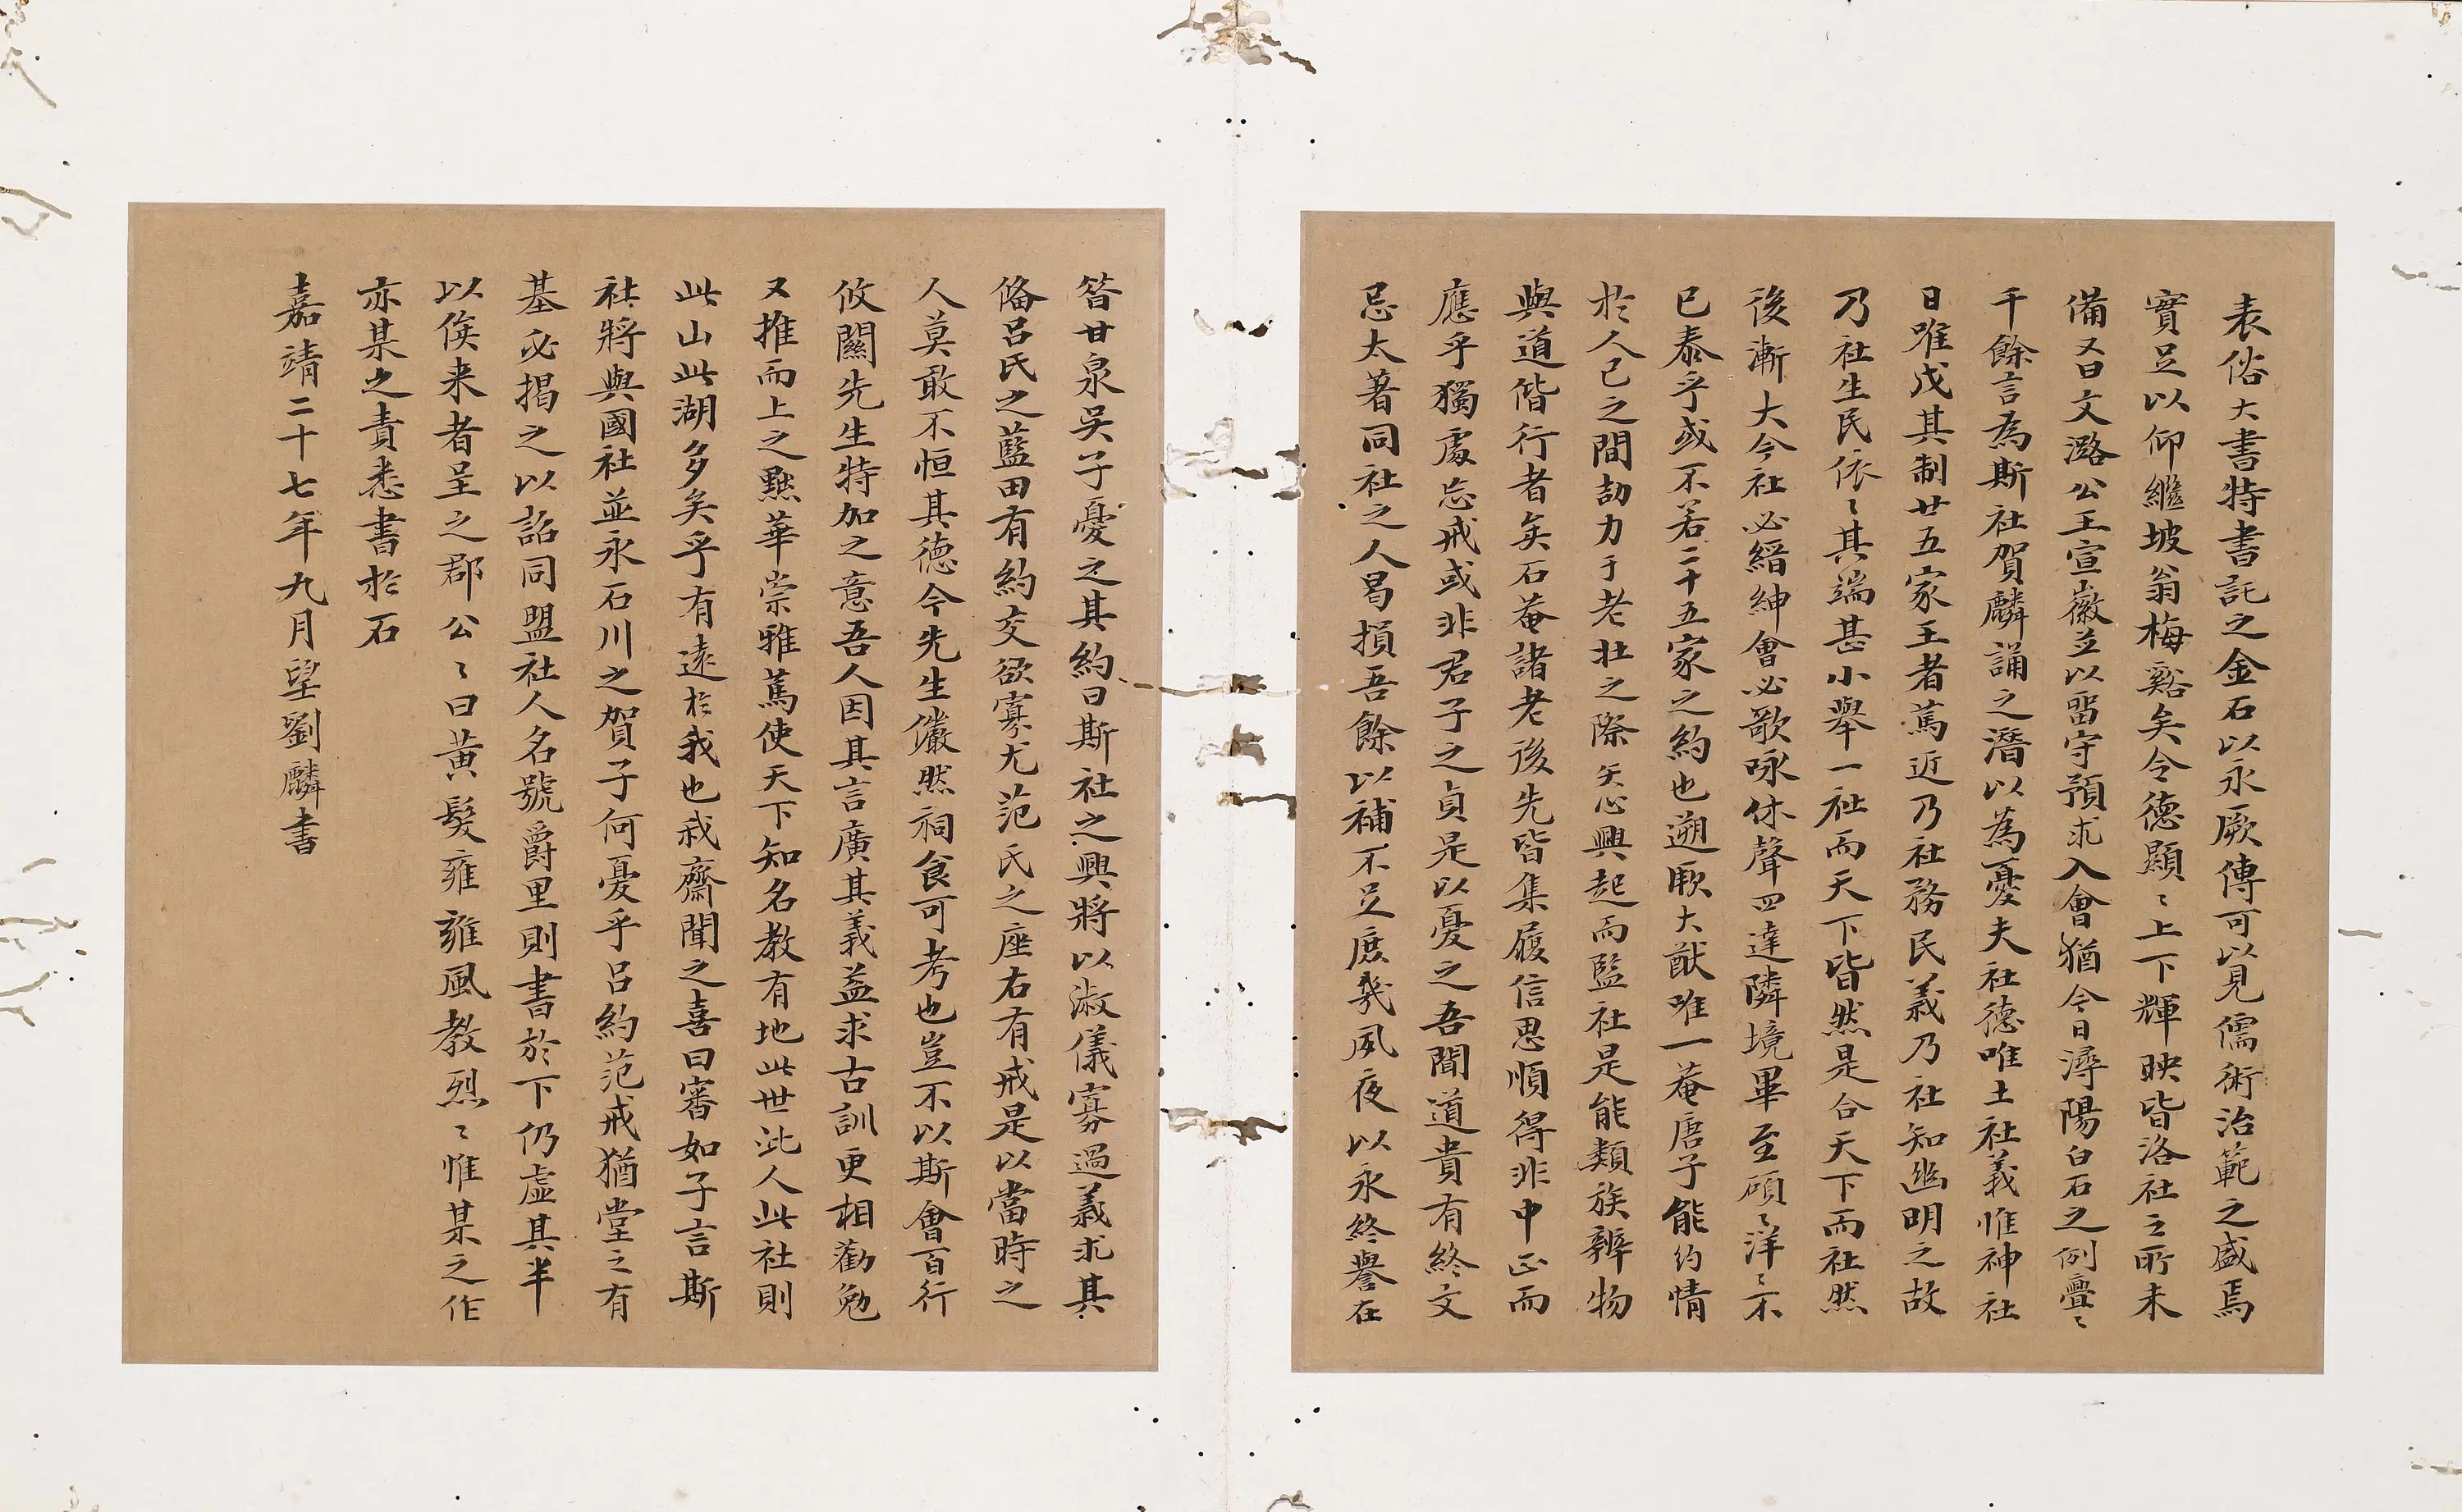 表俗大書特書託之金石以永厥傳可以見儒術治範之盛焉
實足以仰繼坡翁梅谿矣令德顯〻上下輝映皆洛社之所未
備又曰文潞公王宣徽並以畱守預求入會猶今日潯陽白石之例亹〻
千餘言為斯社賀麟誦之潛以為憂夫社德唯土社義惟神社
日唯戊其制廿五家王者篤近乃社務民義乃社知幽明之故
乃社生民依〻其端甚小舉一社而天下皆然是合天下而社然
後漸大今社必縉紳會必歌咏休聲四達隣境畢至碩〻洋〻不
已泰乎或不若二十五家之約也遡厥大猷唯一菴唐子能約情
於人己之間劼力于老壯之際矢心興起而監社是能類族辨物
與道偕行者矣石菴諸老後先皆集履信思順得非中正而
應乎獨處忘戒或非君子之貞是以憂之吾聞道貴有終文
忌太著同社之人曷損吾餘以補不足庶幾夙夜以永終譽在
昝甘泉吳子憂之其約曰斯社之興將以淑儀寡過義求其
偹呂氏之藍田有約交欲寡尤范氏之座右有戒是以當時之
人莫敢不恒其德今先生儼然祠食可考也豈不以斯會百行
攸關先生特加之意吾人因其言廣其義益求古訓更相勸勉
又推而上之黜華崇雅篤使天下知名教有地此世此人此社則
此山此湖多矣乎有遠於我也㢤齋聞之喜曰審如子言斯
社將與國社並永石川之賀子何憂乎呂約范戒猶堂之有
基必揭之以詔同盟社人名號爵里則書於下仍虛其半
以俟来者呈之郡公〻曰黄髮雍雍風教烈〻惟某之作
亦某之責悉書於石
嘉靖二十七年九月望劉麟書